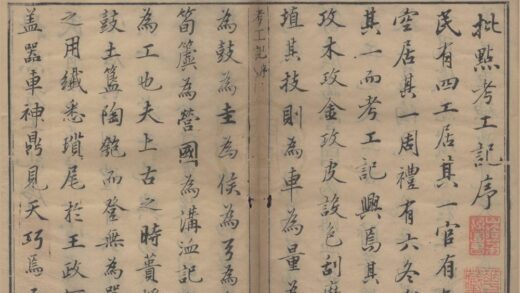 批點考工記序
民有四工居其一官有
空居其一周禮有六冬
其二而考工記興焉其
攻木攻金攻皮設色刮
埴其技則為車為量為
考工記序
為鼓為圭為侯為弓為
筍簴為營國為溝洫記
為工也夫上古之時蕢
鼓土簋陶匏而登無為
之用纖悉瑣尾於王政
蓋器車神鼎見天巧焉